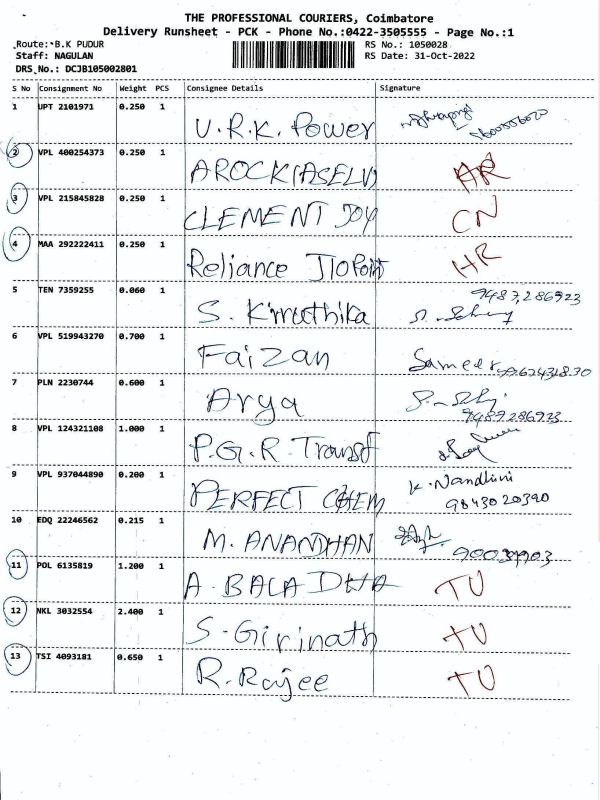 THE PROFESSIONAL COURIERS, Coimbatore
Delivery Runsheet - PCK - Phone No.:0422-3505555 - Page No.:1
Route: B.K PUDUR RS No.: 1050028
Staff: NAGULAN RS Date: 31-Oct-2022
DRS No.: DCJB105002801
S No Consignment No Weight PCS Consignee Details Signature
1 UPT 2101971 0.250 1 U.R.K. Power
2 VPL 400254373 0.250 1 AROCKIASELVI AR
3 VPL 215845828 0.250 1 CLEMENT JOY CN
4 MAA 292222411 0.250 1 Reliance JIO Point HR
5 TEN 7359255 0.060 1 S. Kirruthika 9487286923
6 VPL 519943270 0.700 1 Faizan Sameer
7 PLN 2230744 0.600 1 Arya 9489286923
8 VPL 124321108 1.000 1 P.G.R Transf
9 VPL 937044890 0.200 1 PERFECT CHEM K. Nandhini 9843020390
10 EDQ 22246562 0.215 1 M. ANANDHAN
11 POL 6135819 1.200 1 A. BALA DHA TU
12 NKL 3032554 2.400 1 S. Girinath TU
13 TSI 4093181 0.650 1 R. Rajee TU